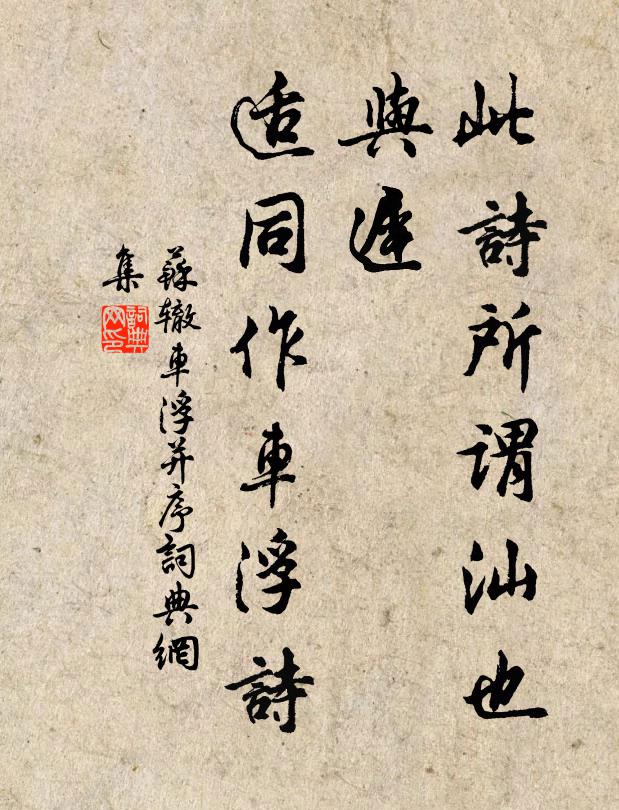 此詩所謂汕也
與遲
适同作車浮詩
蘇辙車浮并序詞典網
集
詞典
网印